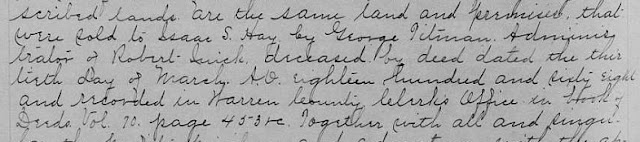 scribed lands are the same land and premises, that
were sold to Isaac S. Hay by George Titman. Adminis
trator of Robert Quick, deceased by deed dated the thir
tieth Day of March A.D. eighteen Hundred and sixty eight
and recorded in Warren County Clerk's Office in Book of
Deeds. Vol. 70. page 453 &c. Together with all and singu-